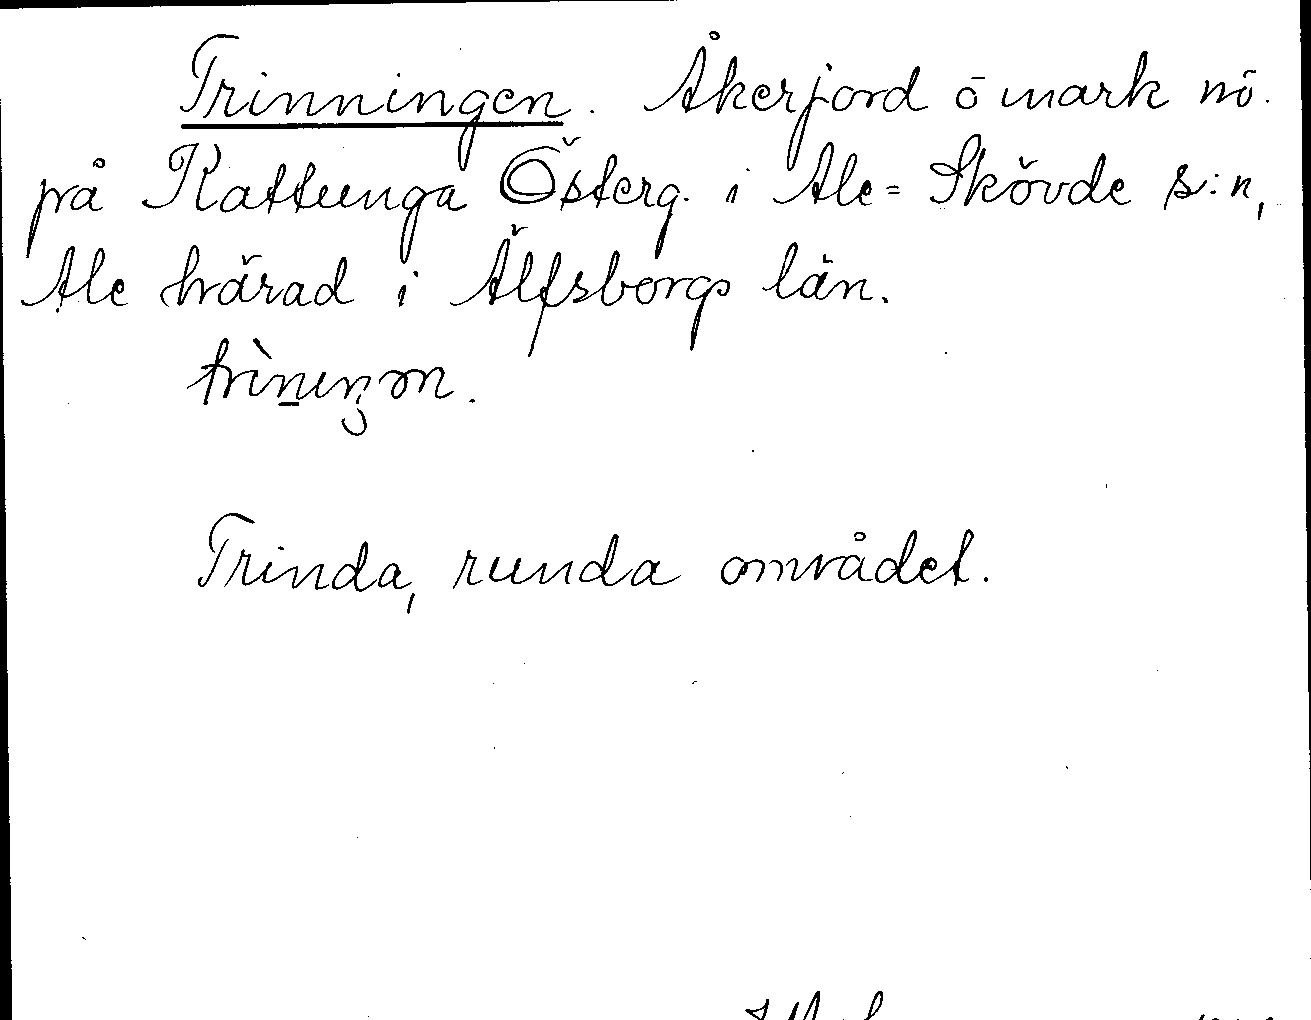 Trinningen. Åkerjord ō mark nö.
på Kattunga Österg. i Ale-Skövde s:n,
Ale härad i Älfsborgs län.
Trinda, runda området.